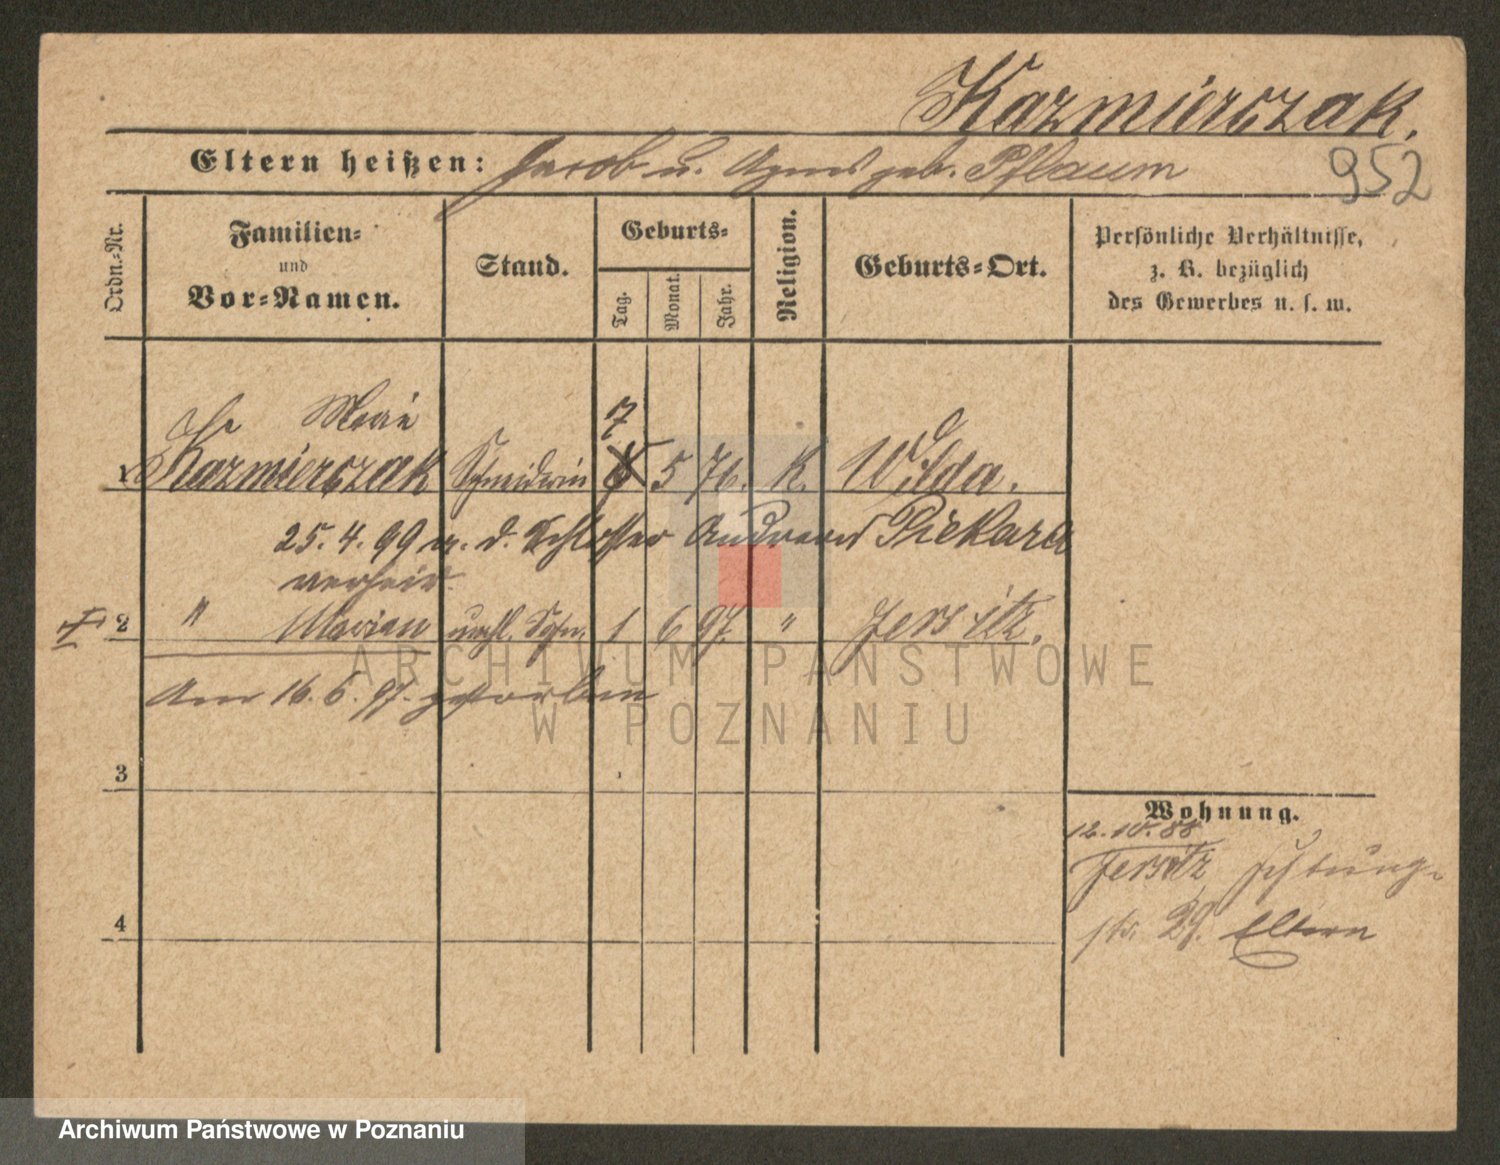 Kazmierczak.
Eltern heißen: Jacob u. Agnes geb. Pflaum
952
Ordn.-Nr.
Familien-
und
Vor-Namen.
Stand.
Geburts-
Tag.
Monat.
Jahr.
Religion.
Geburts-Ort.
Persönliche Verhältnisse,
z. B. bezüglich
des Gewerbes u. s. w.
Marie 7
1 Kazmierczak Schneiderin 5 76. K. Wilda.
25. 4. 99 m. d. Schlosser Andreas Piekara
verheir.
2 " Marian unehl. Sohn. 1 6 97. " Jersitz.
Am 16. 6. 97. gestorben
3
4
Wohnung.
12. 10. 88
Jersitz
str. 29. Eltern
ARCHIWUM PAŃSTWOWE
W POZNANIU
Archiwum Państwowe w Poznaniu